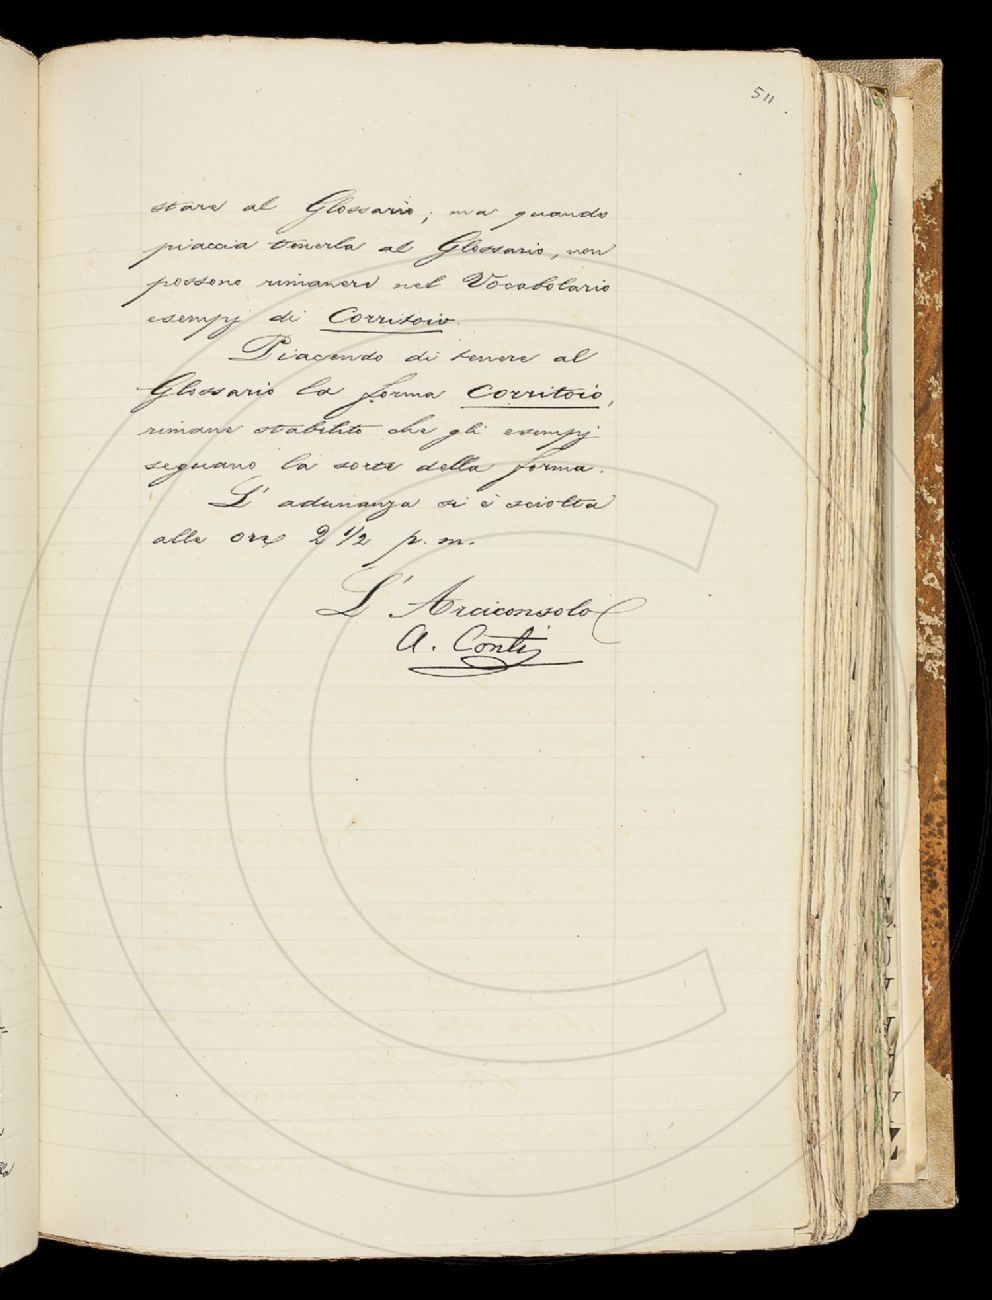 511
stare al Glossario; ma quando
piaccia tenerla al Glossario, non
possono rimanere nel Vocabolario
esempj di Corritoio.
Piacendo di tenere al
Glossario la forma Corritoio,
rimane stabilito che gli esempj
seguano la sorte della forma.
L' adunanza si è sciolta
alle ore 2 1/2 p. m.
L' Arciconsolo
A. Conti